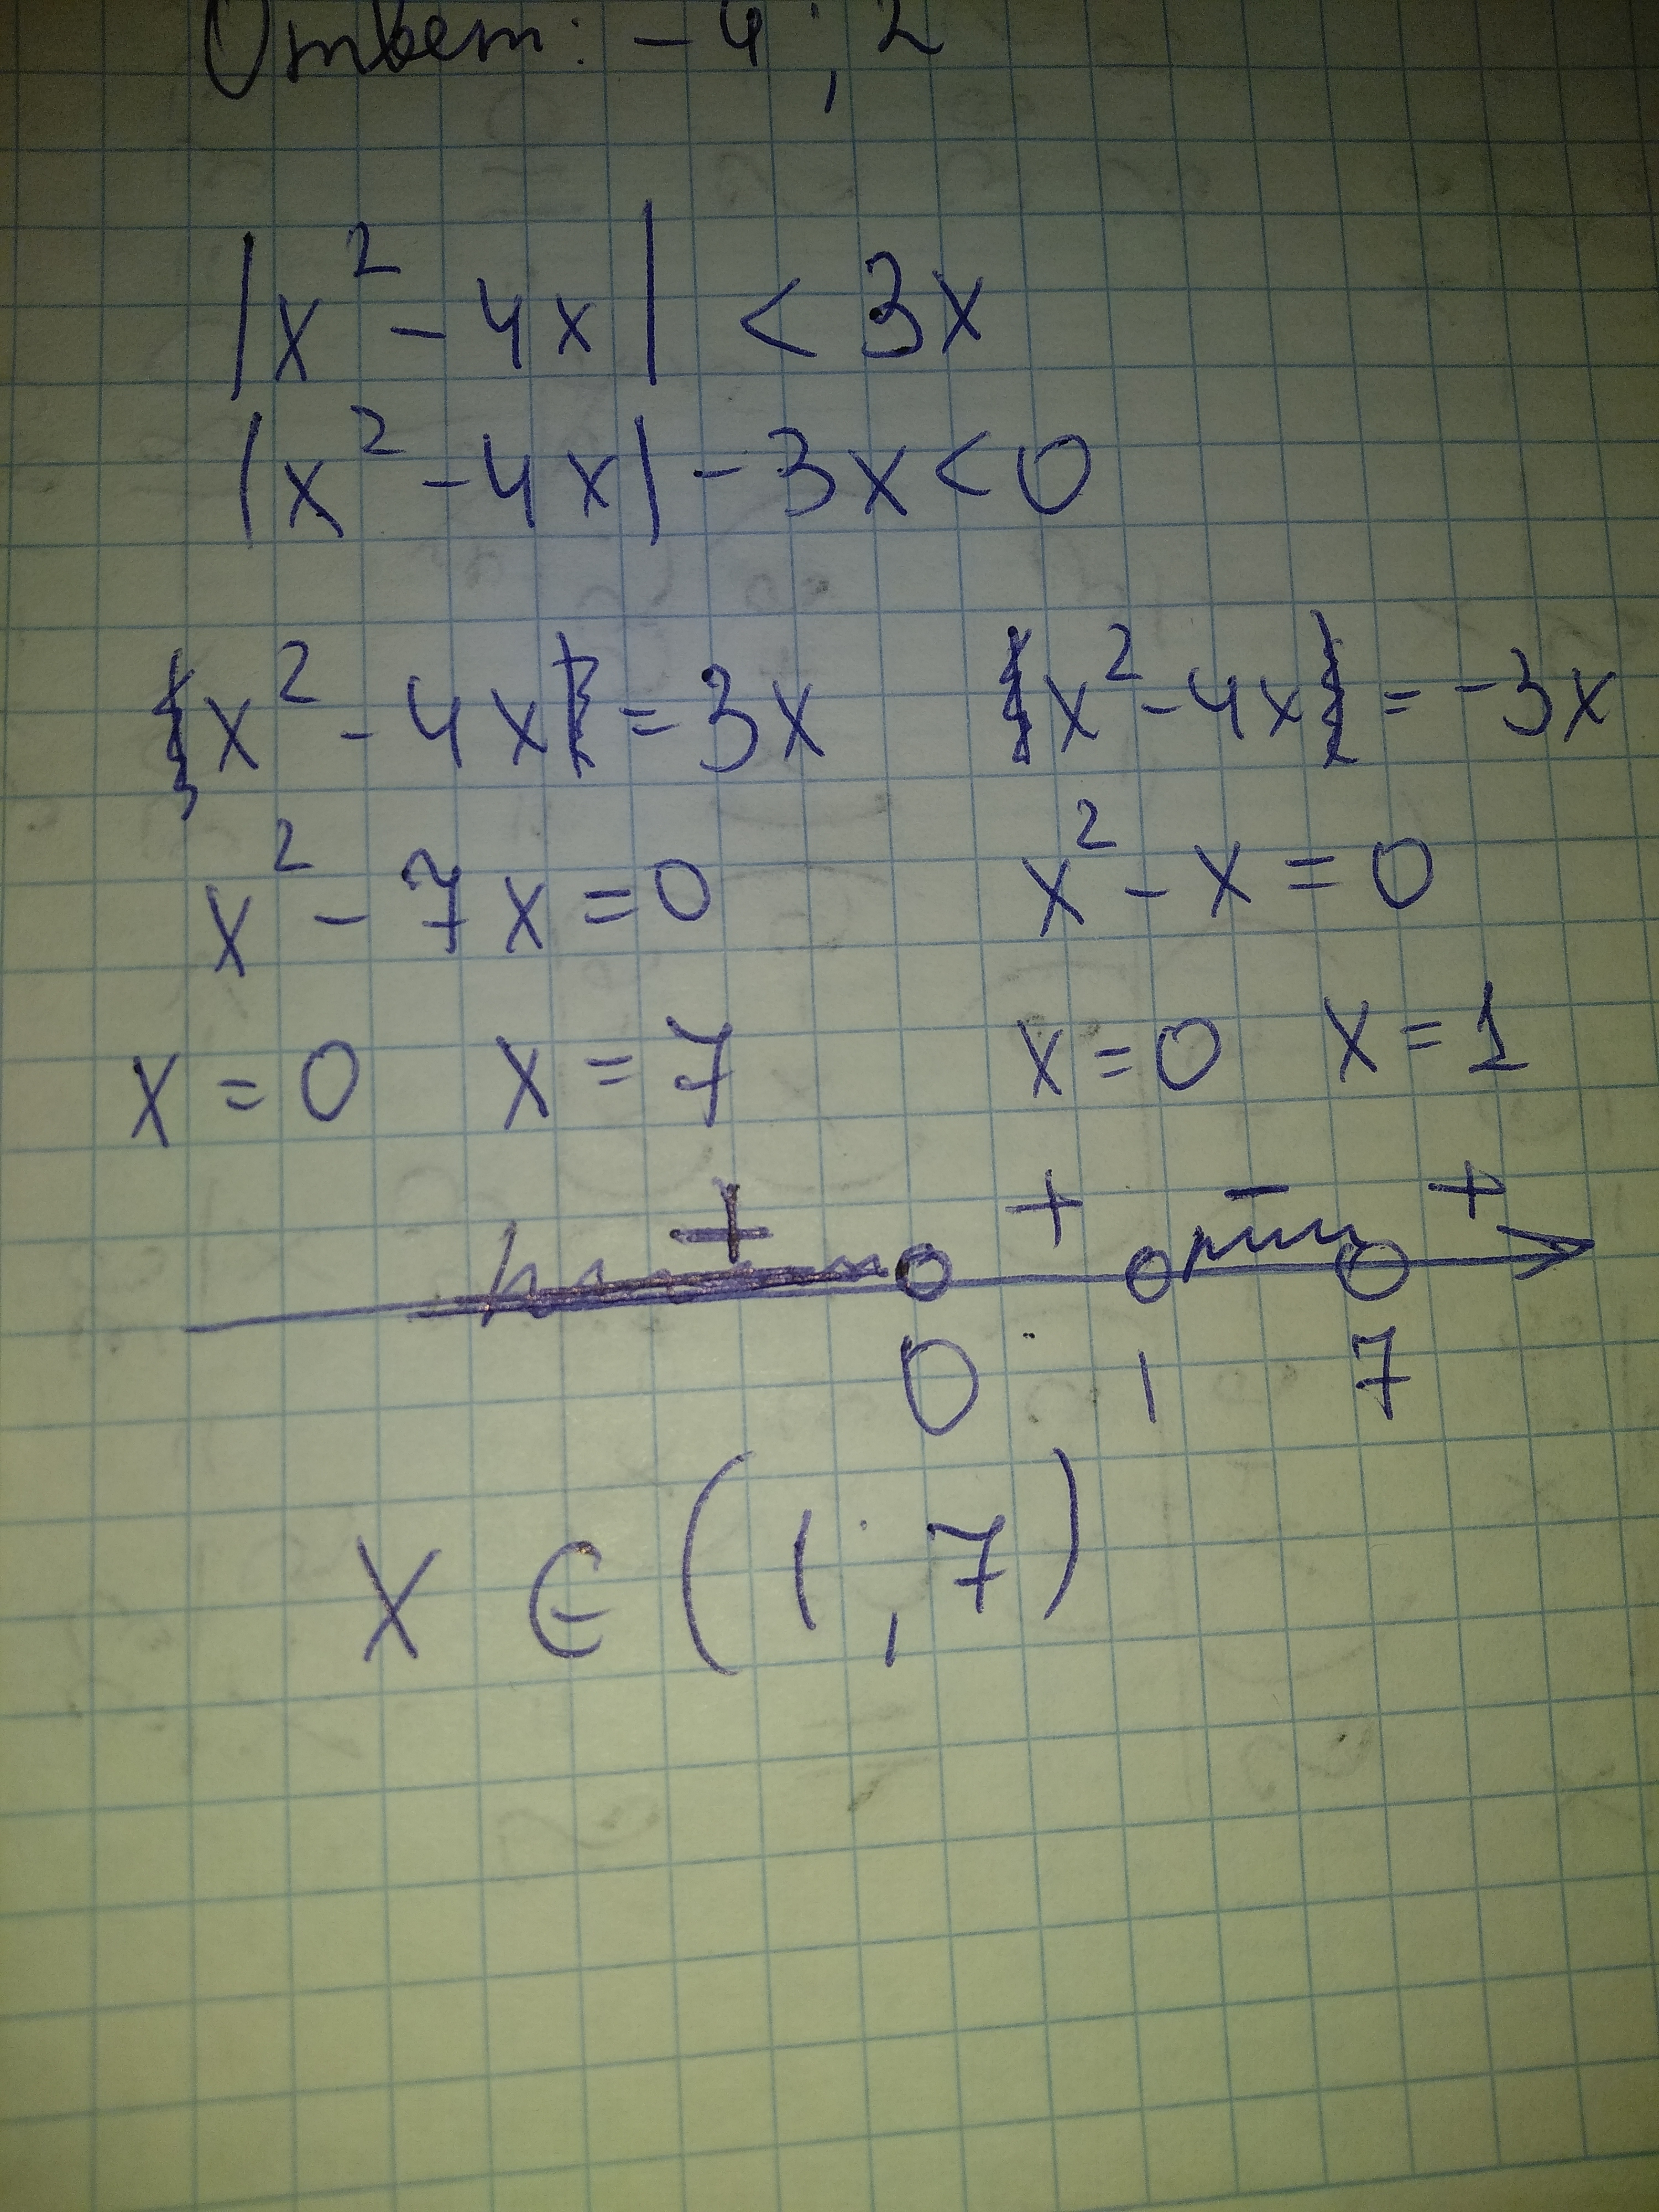 Ответ: -4; 2
|x² - 4x| < 3x
|x² - 4x| - 3x < 0
x² - 4x = 3x x² - 4x = -3x
x² - 7x = 0 x² - x = 0
x = 0 x = 7 x = 0 x = 1
+ + - +
0 1 7
x ∈ (1; 7)